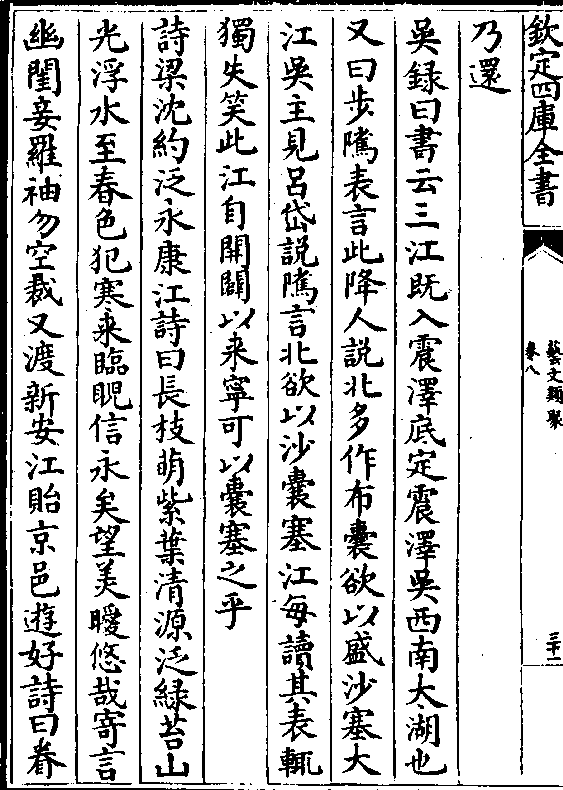 欽定四庫全書
藝文類聚
卷八
三十一
乃還
吳録曰書云三江既入震澤底定震澤吳西南大湖也
又曰步隲表言此降人説北多作布囊欲以盛沙塞大
江吳主見呂岱説隲言北欲以沙囊塞江每讀其表輒
獨失笑此江自開闢以来寧可以囊塞之乎
詩梁沈約泛永康江詩曰長枝萌紫葉清源泛緑苔山
光浮水至春色犯寒来臨睨信永矣望美曖悠哉寄言
幽閨妾羅袖勿空裁又渡新安江貽京邑遊好詩曰眷